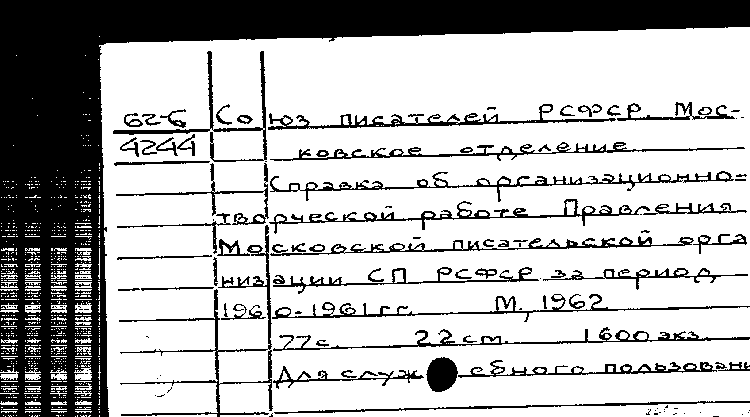 62-6 Союз писателей РСФСР. Мос-
4244 ковское отделение
Справка об организационно-
творческой работе Правления
Московской писательской орга
низации СП РСФСР за период
1960-1961 гг. М., 1962
77с. 22см. 1600 экз.
Для служебного пользовани